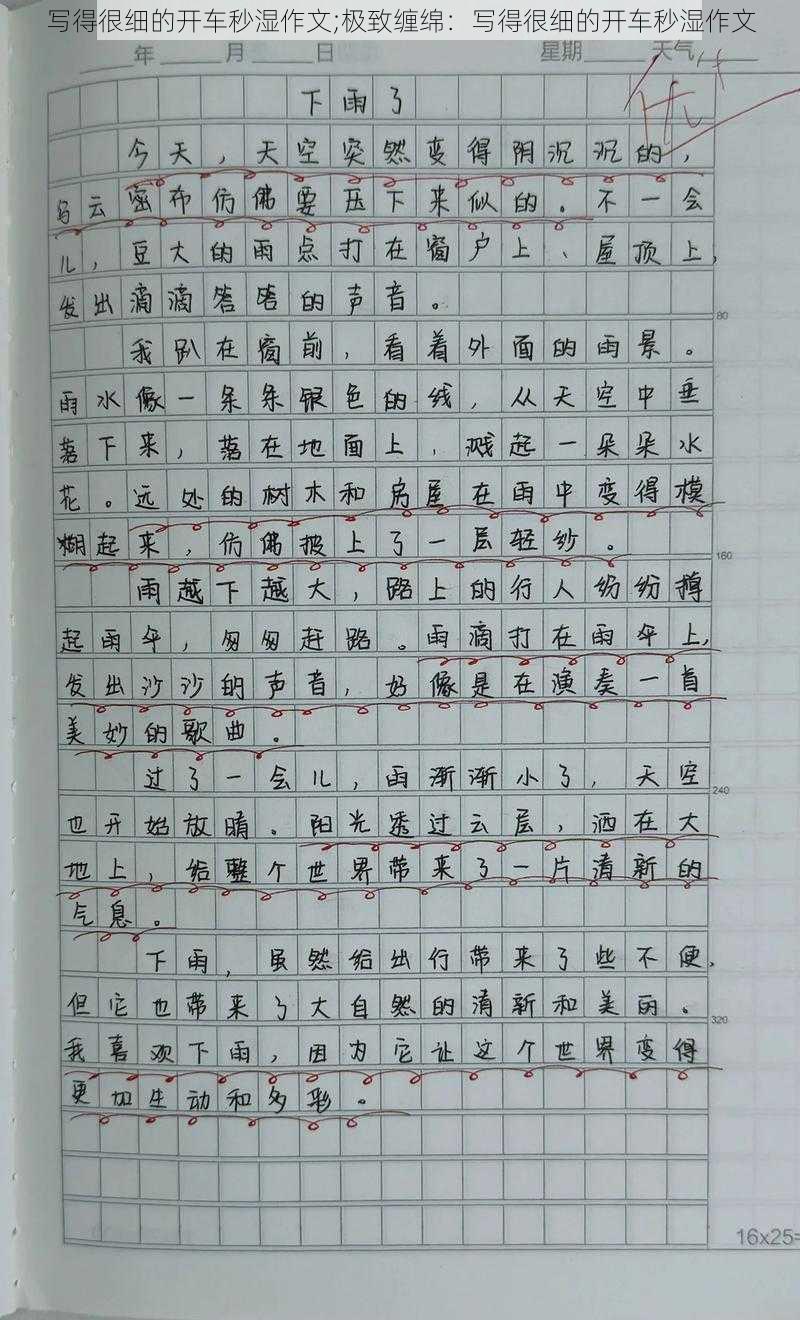 写得很细的开车秒湿作文;极致缠绵：写得很细的开车秒湿作文
年 月 日 星期 天气
优
下雨了
今天，天空突然变得阴沉沉的，
乌云密布仿佛要压下来似的。不一会
儿，豆大的雨点打在窗户上、屋顶上，
发出滴滴答答的声音。
80
我趴在窗前，看着外面的雨景。
雨水像一条条银色的线，从天空中垂
落下来，落在地面上，溅起一朵朵水
花。远处的树木和房屋在雨中变得模
糊起来，仿佛披上了一层轻纱。
160
雨越下越大，路上的行人纷纷撑
起雨伞，匆匆赶路。雨滴打在雨伞上，
发出沙沙的声音，好像是在演奏一首
美妙的歌曲。
过了一会儿，雨渐渐小了，天空
240
也开始放晴。阳光透过云层，洒在大
地上，给整个世界带来了一片清新的
气息。
下雨，虽然给出行带来了些不便，
但它也带来了大自然的清新和美丽。
320
我喜欢下雨，因为它让这个世界变得
更加生动和多彩。
16x25=